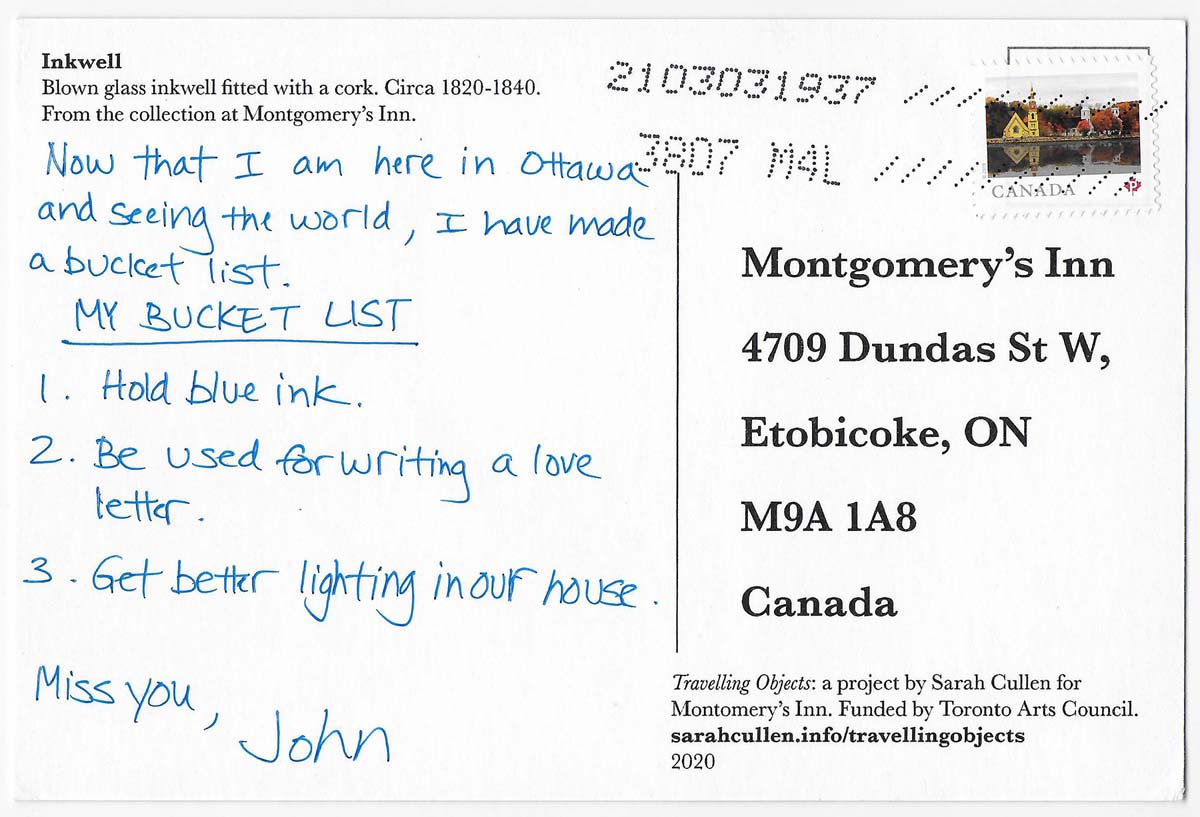 Inkwell
Blown glass inkwell fitted with a cork. Circa 1820-1840.
From the collection at Montgomery's Inn.
Now that I am here in Ottawa
and seeing the world, I have made
a bucket list.
MY BUCKET LIST
1. Hold blue ink.
2. Be used for writing a love
letter.
3. Get better lighting in our house.
Miss you,
John
2103031937
3807 M4L
CANADA
P
Montgomery's Inn
4709 Dundas St W,
Etobicoke, ON
M9A 1A8
Canada
Travelling Objects: a project by Sarah Cullen for
Montomery's Inn. Funded by Toronto Arts Council.
sarahcullen.info/travellingobjects
2020